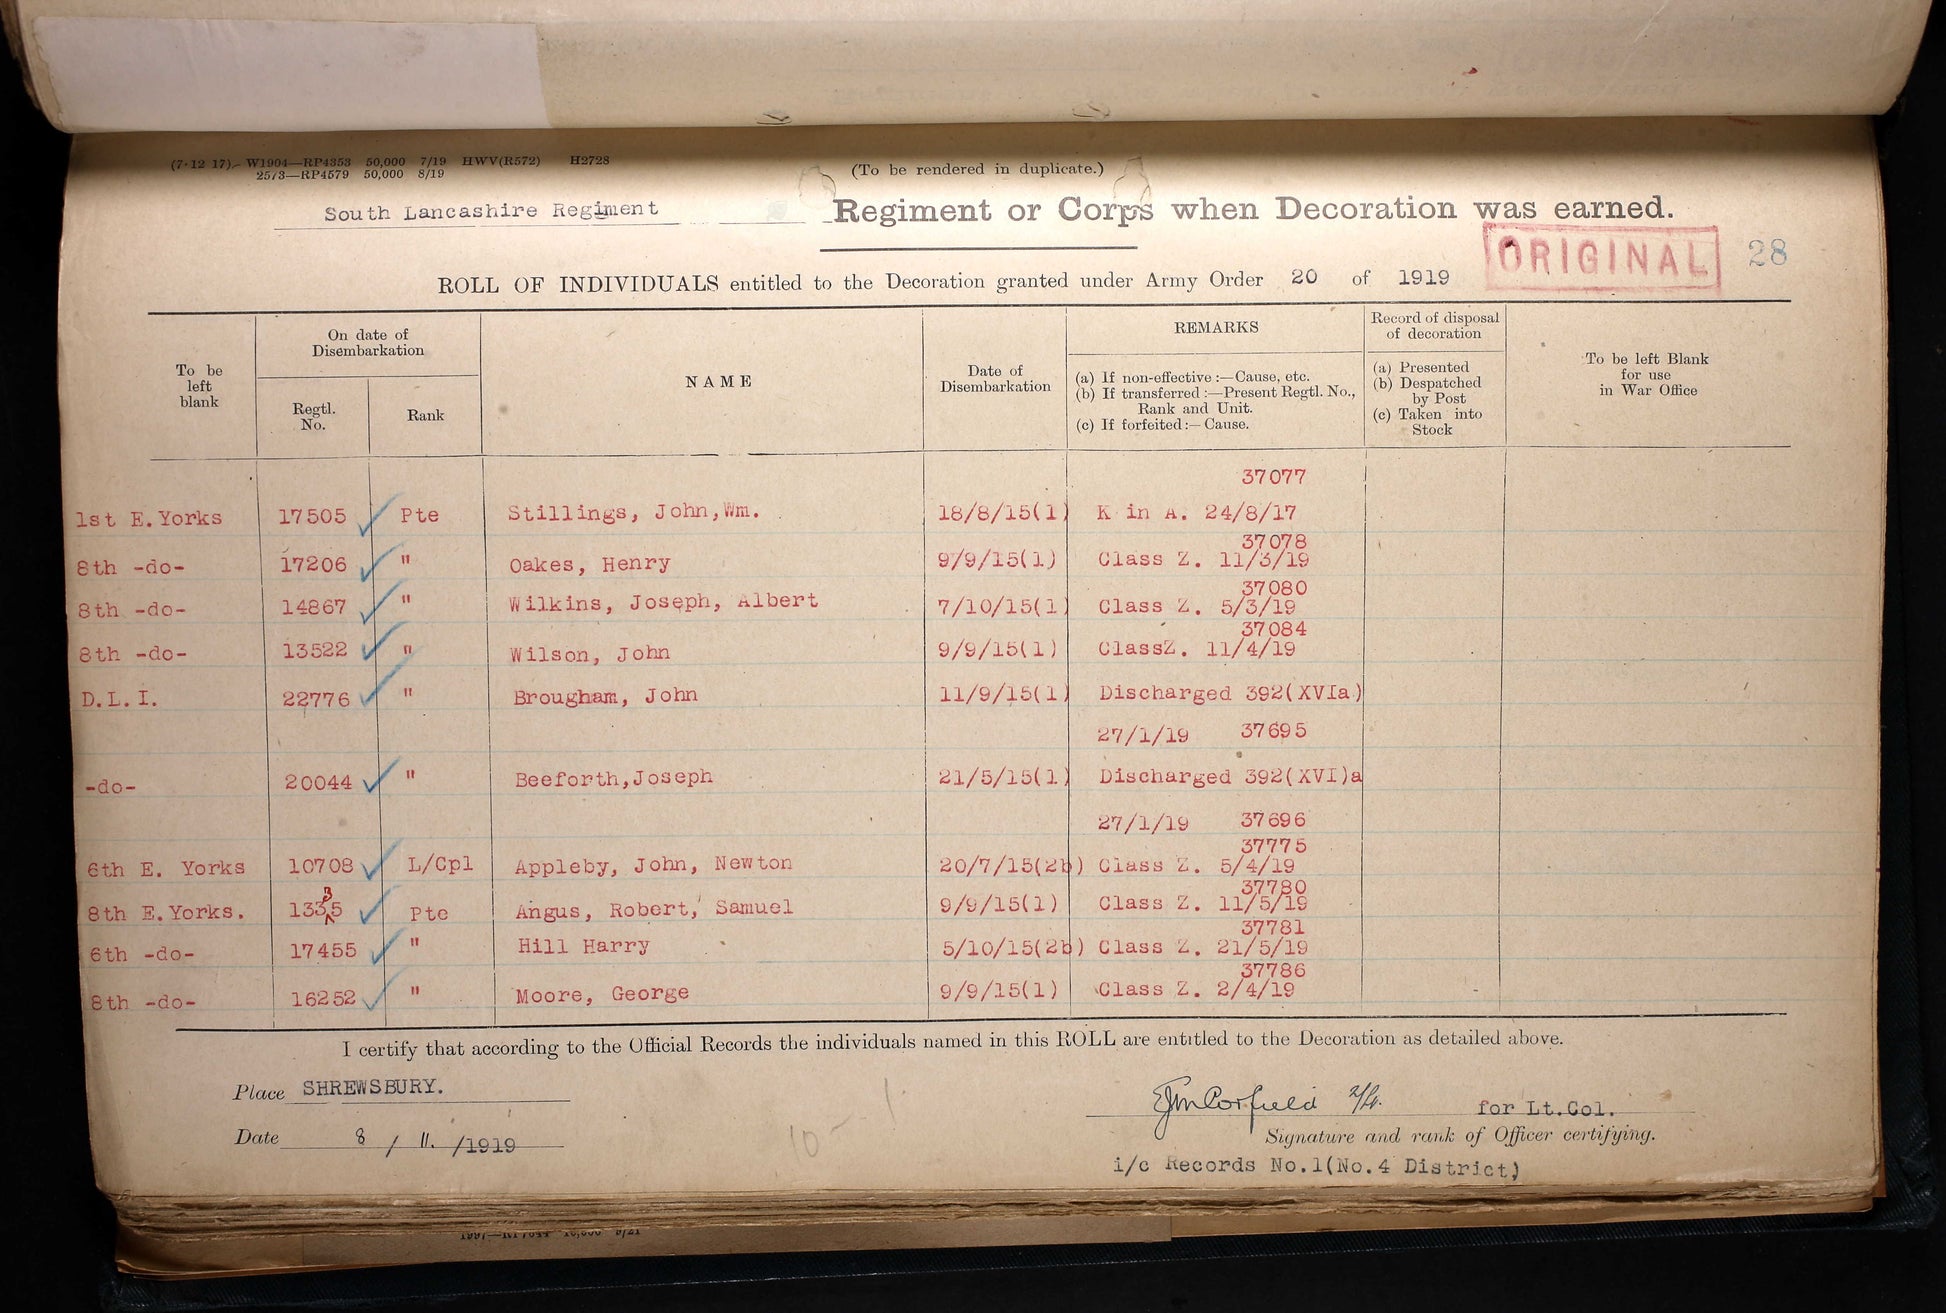 (7·12 17).— W1904—RP4353 50,000 7/19 HWV(R572) H2728
2573—RP4579 50,000 8/19
(To be rendered in duplicate.)
South Lancashire Regiment Regiment or Corps when Decoration was earned.
ORIGINAL 28
ROLL OF INDIVIDUALS entitled to the Decoration granted under Army Order 20 of 1919
To be
left
blank
On date of
Disembarkation
Regtl.
No.
Rank
NAME
Date of
Disembarkation
REMARKS
(a) If non-effective :—Cause, etc.
(b) If transferred :—Present Regtl. No.,
Rank and Unit.
(c) If forfeited :— Cause.
Record of disposal
of decoration
(a) Presented
(b) Despatched
by Post
(c) Taken into
Stock
To be left Blank
for use
in War Office
37077
1st E.Yorks 17505 Pte Stillings, John,Wm. 18/8/15(1) K in A. 24/8/17
37078
8th -do- 17206 " Oakes, Henry 9/9/15(1) Class Z. 11/3/19
37080
8th -do- 14867 " Wilkins, Joseph, Albert 7/10/15(1) Class Z. 5/3/19
37084
8th -do- 13522 " Wilson, John 9/9/15(1) ClassZ. 11/4/19
D.L.I. 22776 " Brougham, John 11/9/15(1) Discharged 392(XVIa)
27/1/19 37695
-do- 20044 " Beeforth,Joseph 21/5/15(1) Discharged 392(XVI)a
27/1/19 37696
37775
6th E. Yorks 10708 L/Cpl Appleby, John, Newton 20/7/15(2b) Class Z. 5/4/19
3 37780
8th E.Yorks. 1335 Pte Angus, Robert, Samuel 9/9/15(1) Class Z. 11/5/19
37781
6th -do- 17455 " Hill Harry 5/10/15(2b) Class Z. 21/5/19
37786
8th -do- 16252 " Moore, George 9/9/15(1) Class Z. 2/4/19
I certify that according to the Official Records the individuals named in this ROLL are entitled to the Decoration as detailed above.
Place SHREWSBURY.
Corfield for Lt.Col.
Date 8 / 11. /1919
Signature and rank of Officer certifying.
10 — 1
i/c Records No.1(No.4 District)